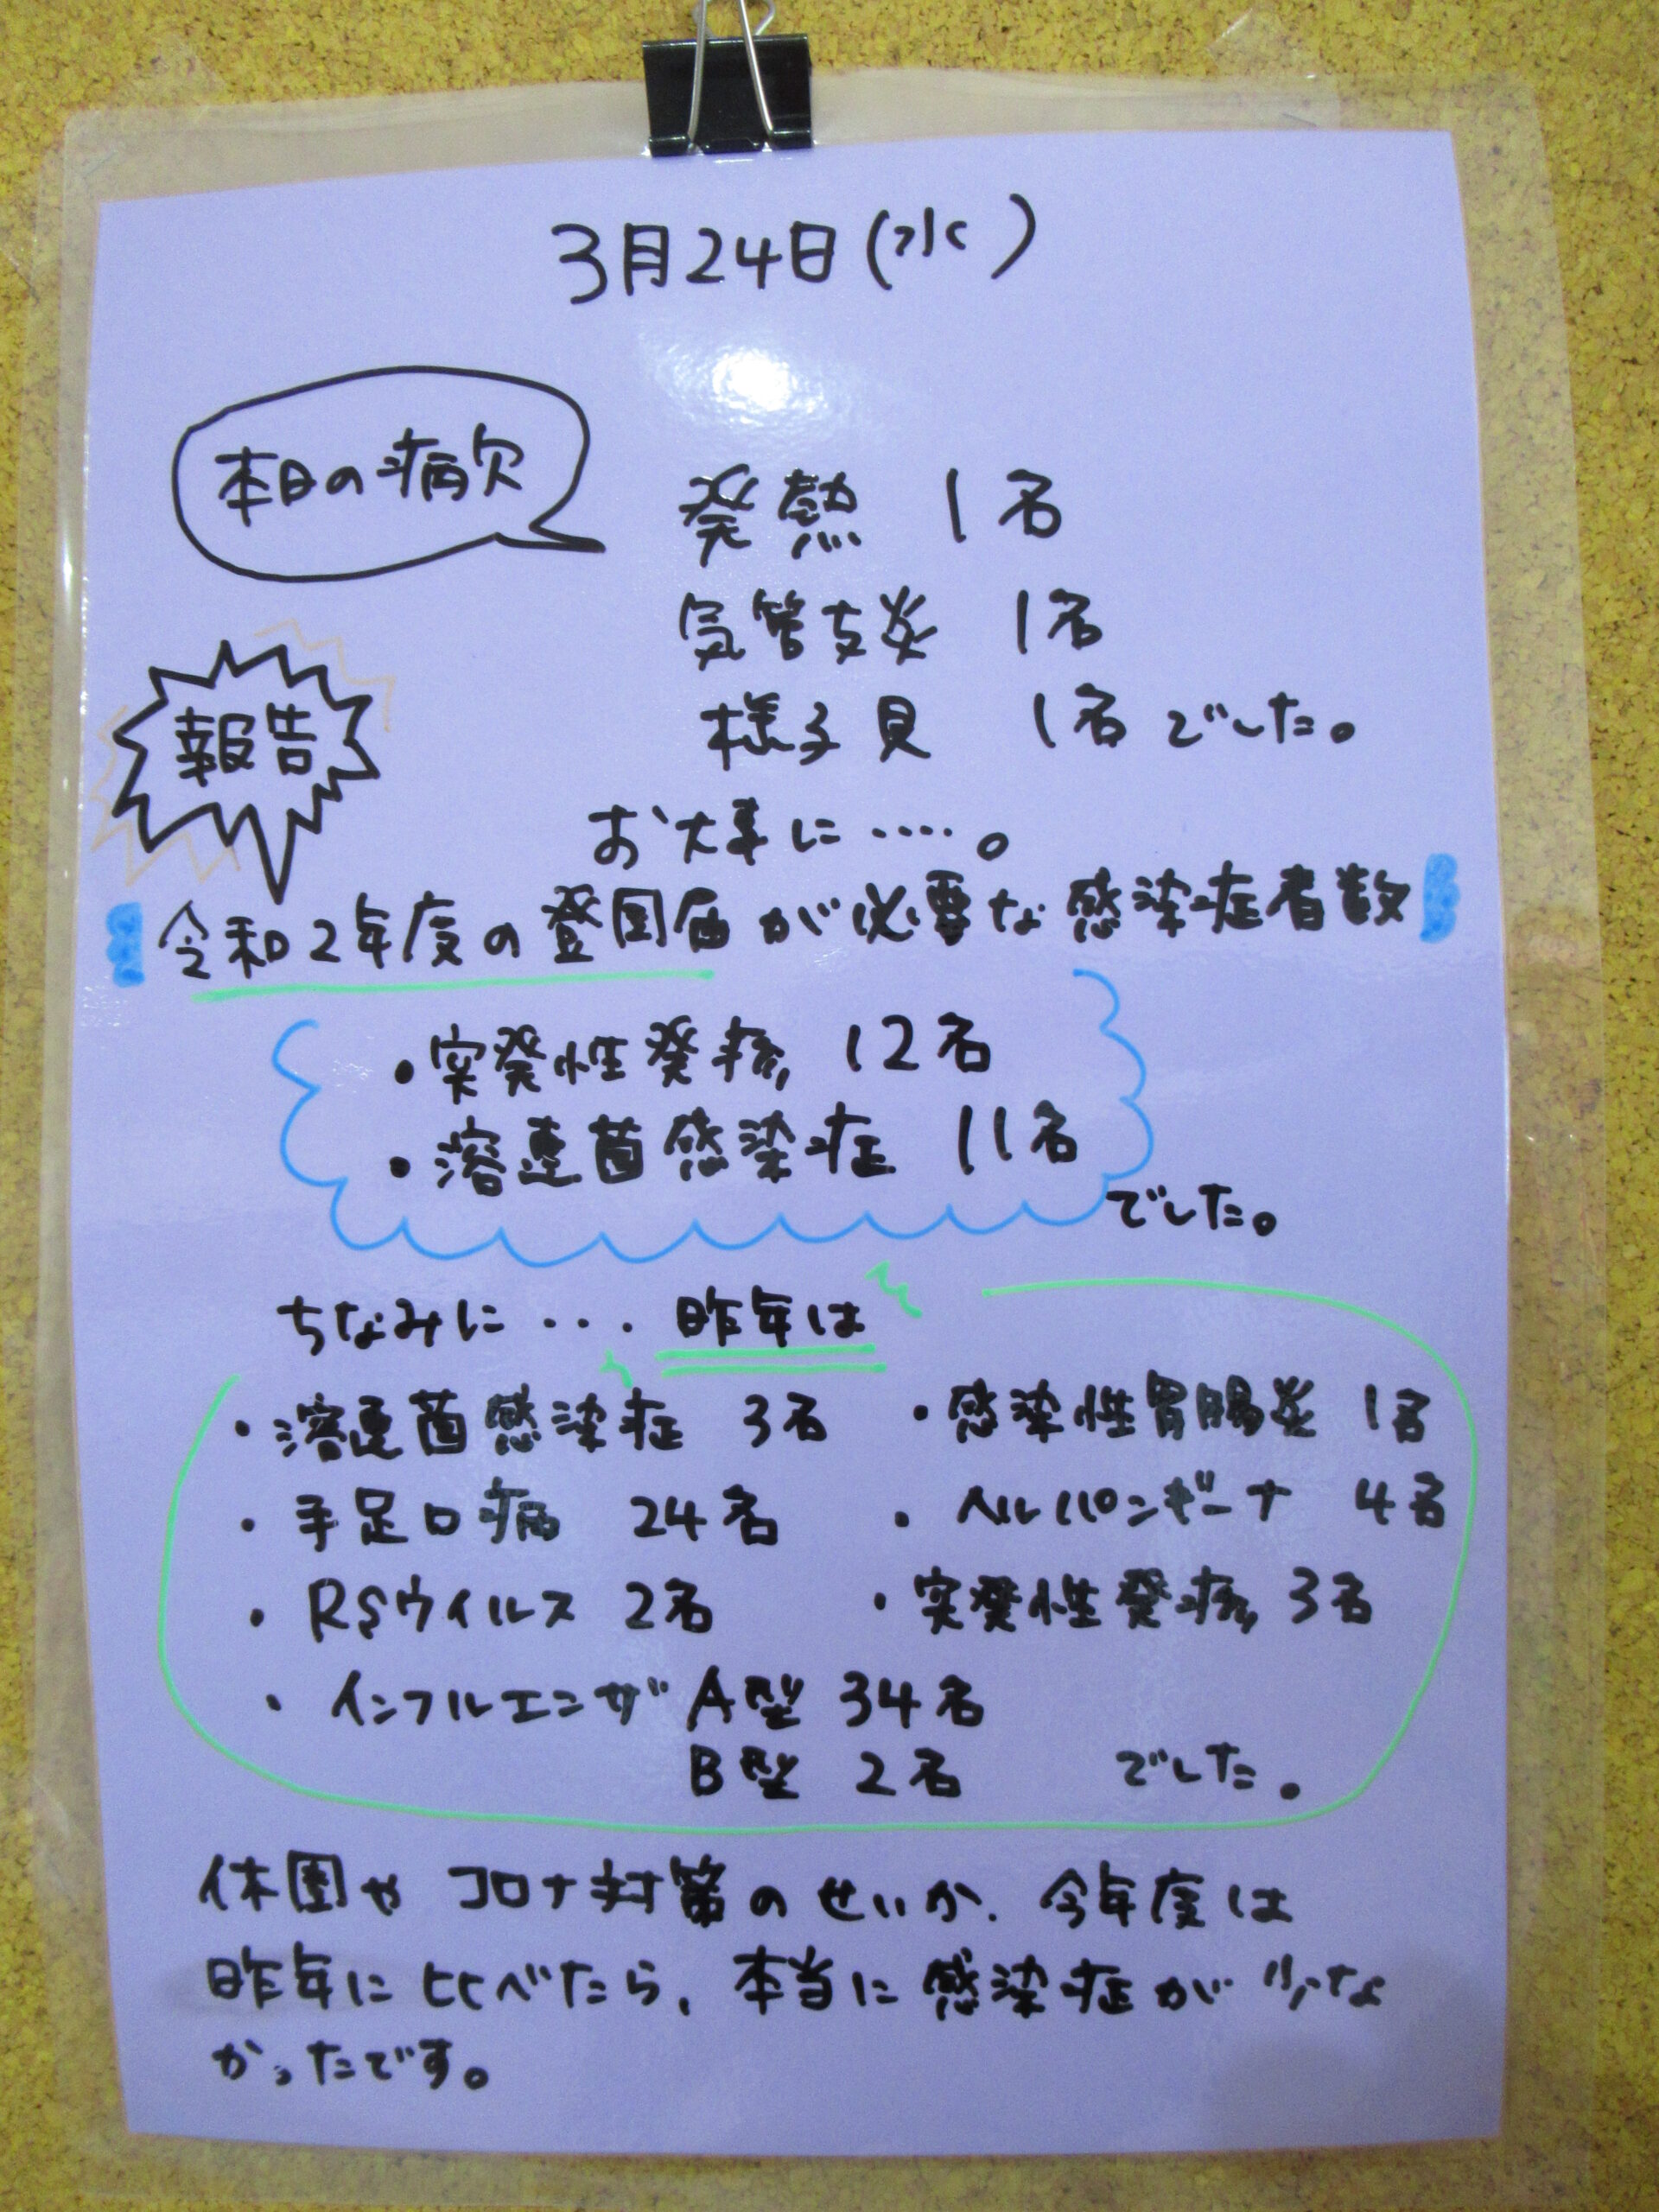 3月24日(水)
本日の病欠
発熱 1名
気管支炎 1名
様子見 1名 でした。
報告
お大事に‥‥。
令和2年度の登園届が必要な感染症者数
・突発性発疹 12名
・溶連菌感染症 11名
でした。
ちなみに・・・昨年は
・溶連菌感染症 3名 ・感染性胃腸炎 1名
・手足口病 24名 ・ヘルパンギーナ 4名
・RSウイルス 2名 ・突発性発疹 3名
・インフルエンザ A型 34名
B型 2名 でした。
休園や コロナ対策のせいか、今年度は
昨年に比べたら、本当に感染症が少な
かったです。